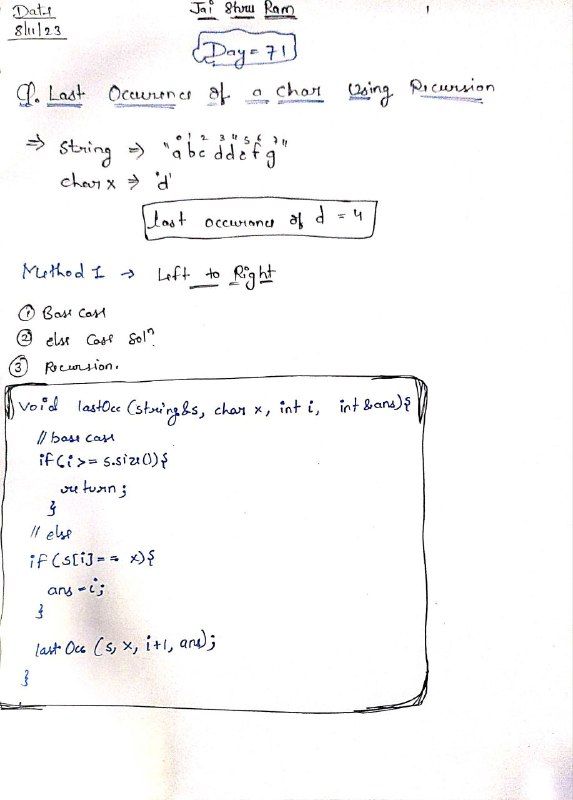 Date
8/11/23
Jai Shree Ram
Day = 71
Q. Last Occurence of a char Using Recursion
⇒ string ⇒ "abcddefg"
0 1 2 3 4 5 6 7
char x ⇒ 'd'
last occurance of d = 4
Method 1 → Left to Right
① Base case
② else case Solⁿ.
③ Recursion.
void lastOcc (string &s, char x, int i, int &ans){
// base case
if (i >= s.size()){
return;
}
// else
if (s[i] == x){
ans = i;
}
lastOcc (s, x, i+1, ans);
}